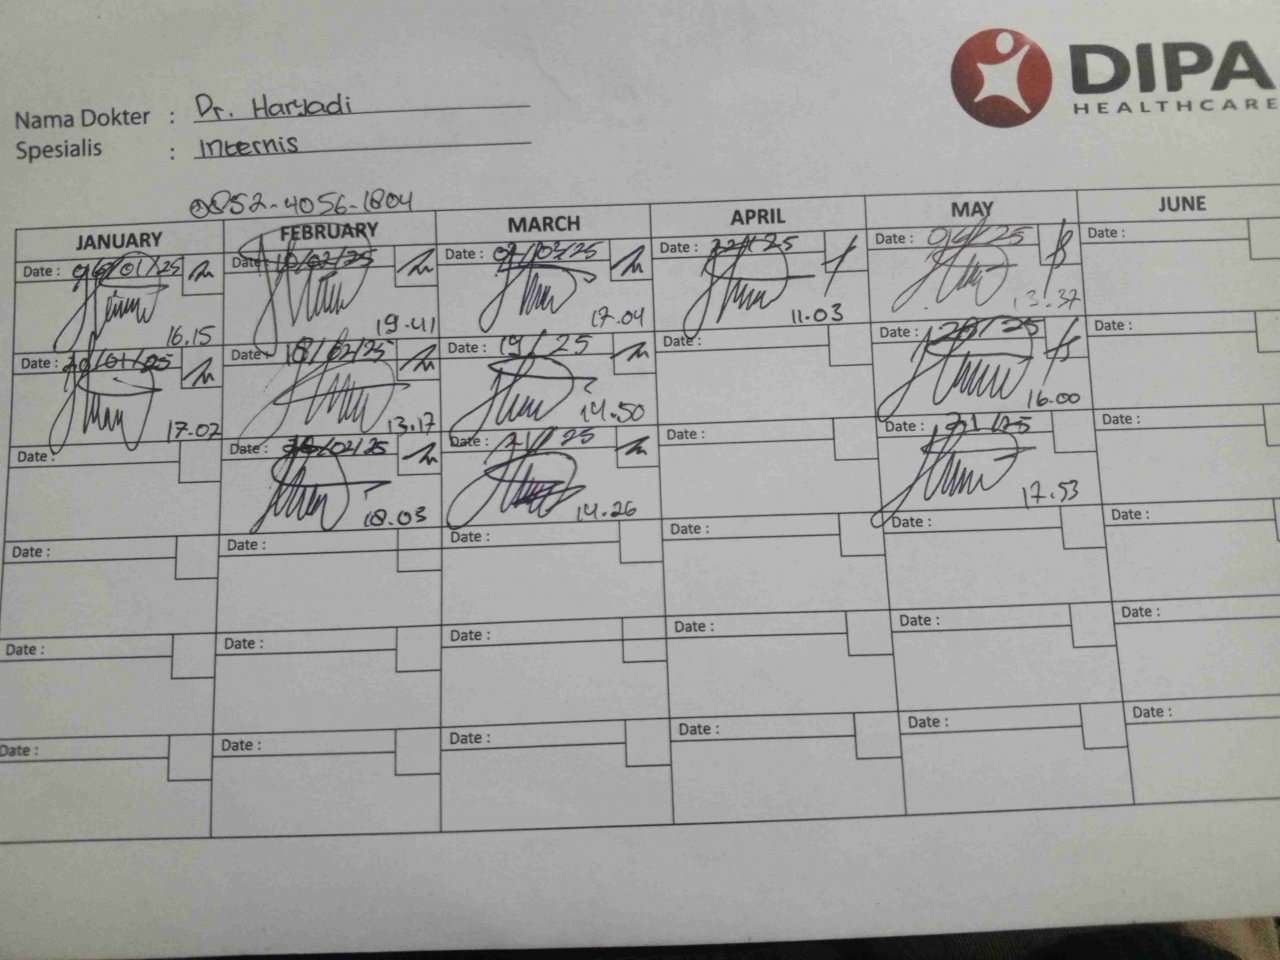 DIPA
HEALTHCARE
Nama Dokter : Dr. Haryadi
Spesialis : Internis
0852-4056-1804
JANUARY FEBRUARY MARCH APRIL MAY JUNE
Date : 06/01/25 Date : 10/02/25 Date : /03/25 Date : Date : Date :
16.15 19.41 17.04 11.03 13.37
Date : 20/01/25 Date : 18/02/25 Date : 19/ 25 Date : Date : Date :
17.02 13.17 14.50 16.00
Date : Date : /02/25 Date : 21/ 25 Date : Date : 21/25 Date :
18.03 14.26 17.53
Date : Date : Date : Date : Date : Date :
Date : Date : Date : Date : Date : Date :
Date : Date : Date : Date : Date : Date :